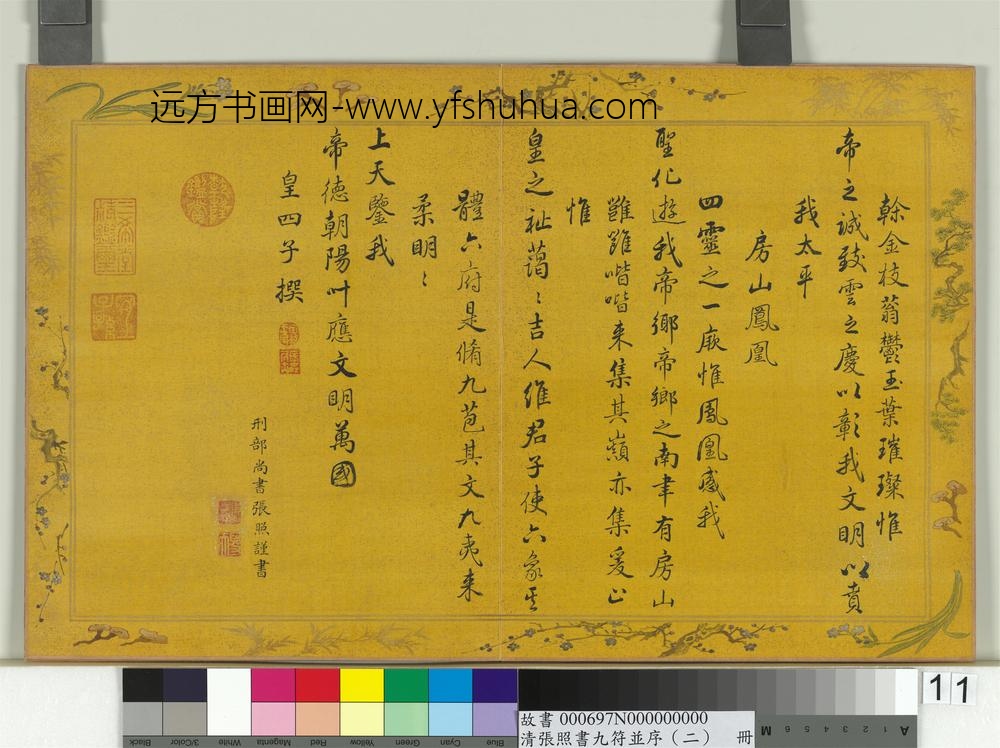 远方书画网-www.yfshuhua.com
榦金枝蓊鬱玉葉璀璨惟
帝之誠致雲之慶以彰我文明以賁
我太平
房山鳳凰
四靈之一厥惟鳳凰感我
聖化遊我帝鄉帝鄉之南聿有房山
雝雝喈喈来集其巔亦集爰止
惟
皇之祉藹〻吉人維君子使六象其
體六府是脩九苞其文九夷来
柔明〻
上天鑒我
帝德朝陽叶應文明萬國
皇四子撰
刑部尚書張照謹書
Black
3/Color
White
Magenta
Red
Yellow
Green
Cyan
Blue
M
6 5 4 3 2 1
A
故書 000697N000000000
清張照書九符並序（二） 冊
11